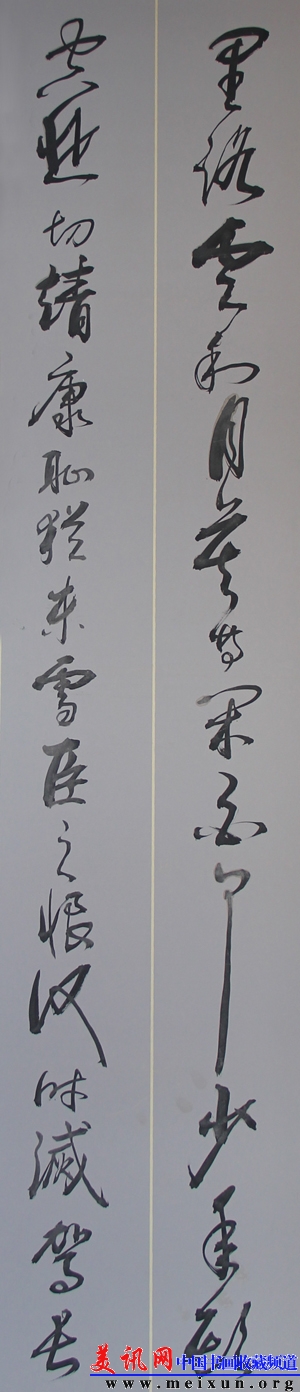 里路雲和月莫等閑白了少年頭
空悲切靖康耻猶未雪臣子恨何時滅駕長
美讯网 中国书画收藏频道
www.meixun.org